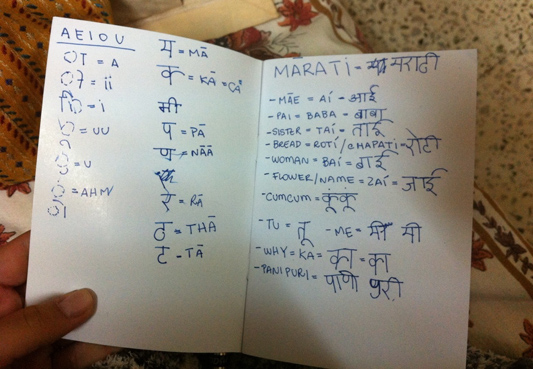 A E I O U
ा = A
ी = ii
ि = i
ू = UU
ु = U
= AHM
य = MĀ
क = KĀ = CA
मी
प = PĀ
ण = NĀĀ
र = RĀ
ठ = THĀ
ट - TĀ
MARATI = मराठी
- MÃE = AÍ - आई
- PAI = BABA = बाबा
- SISTER = TAÍ = ताई
- BREAD = ROTÍ / CHAPATI = रोटी
- WOMAN = BAÍ = बाई
- FLOWER/NAME = ZAÍ = जाई
- CUMCUM = कूंकूं
- TU = तू - ME = मी मी
- WHY = KA = का = का
- PANIPURI = पाणी पुरी